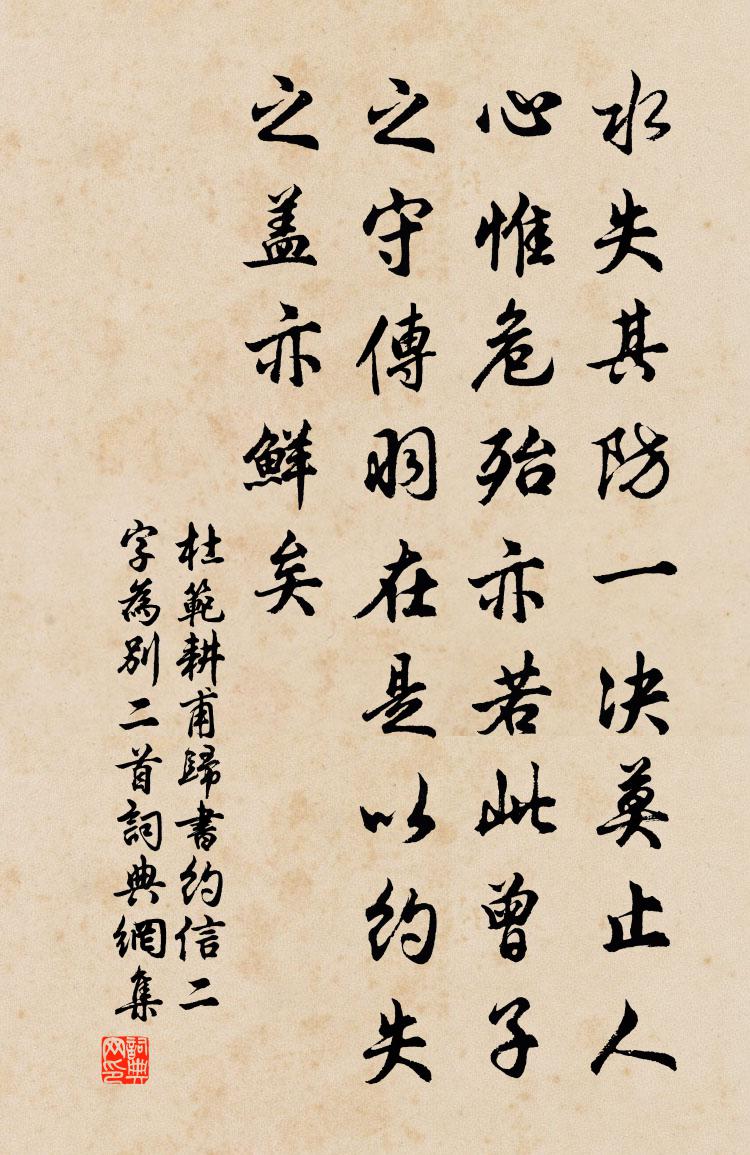 水失其防一决莫止人
心惟危殆亦若此曾子
之守傳羽在是以約失
之盖亦鮮矣
杜範耕甫歸書約信二
字為別二首詞典網集
詞典
网印